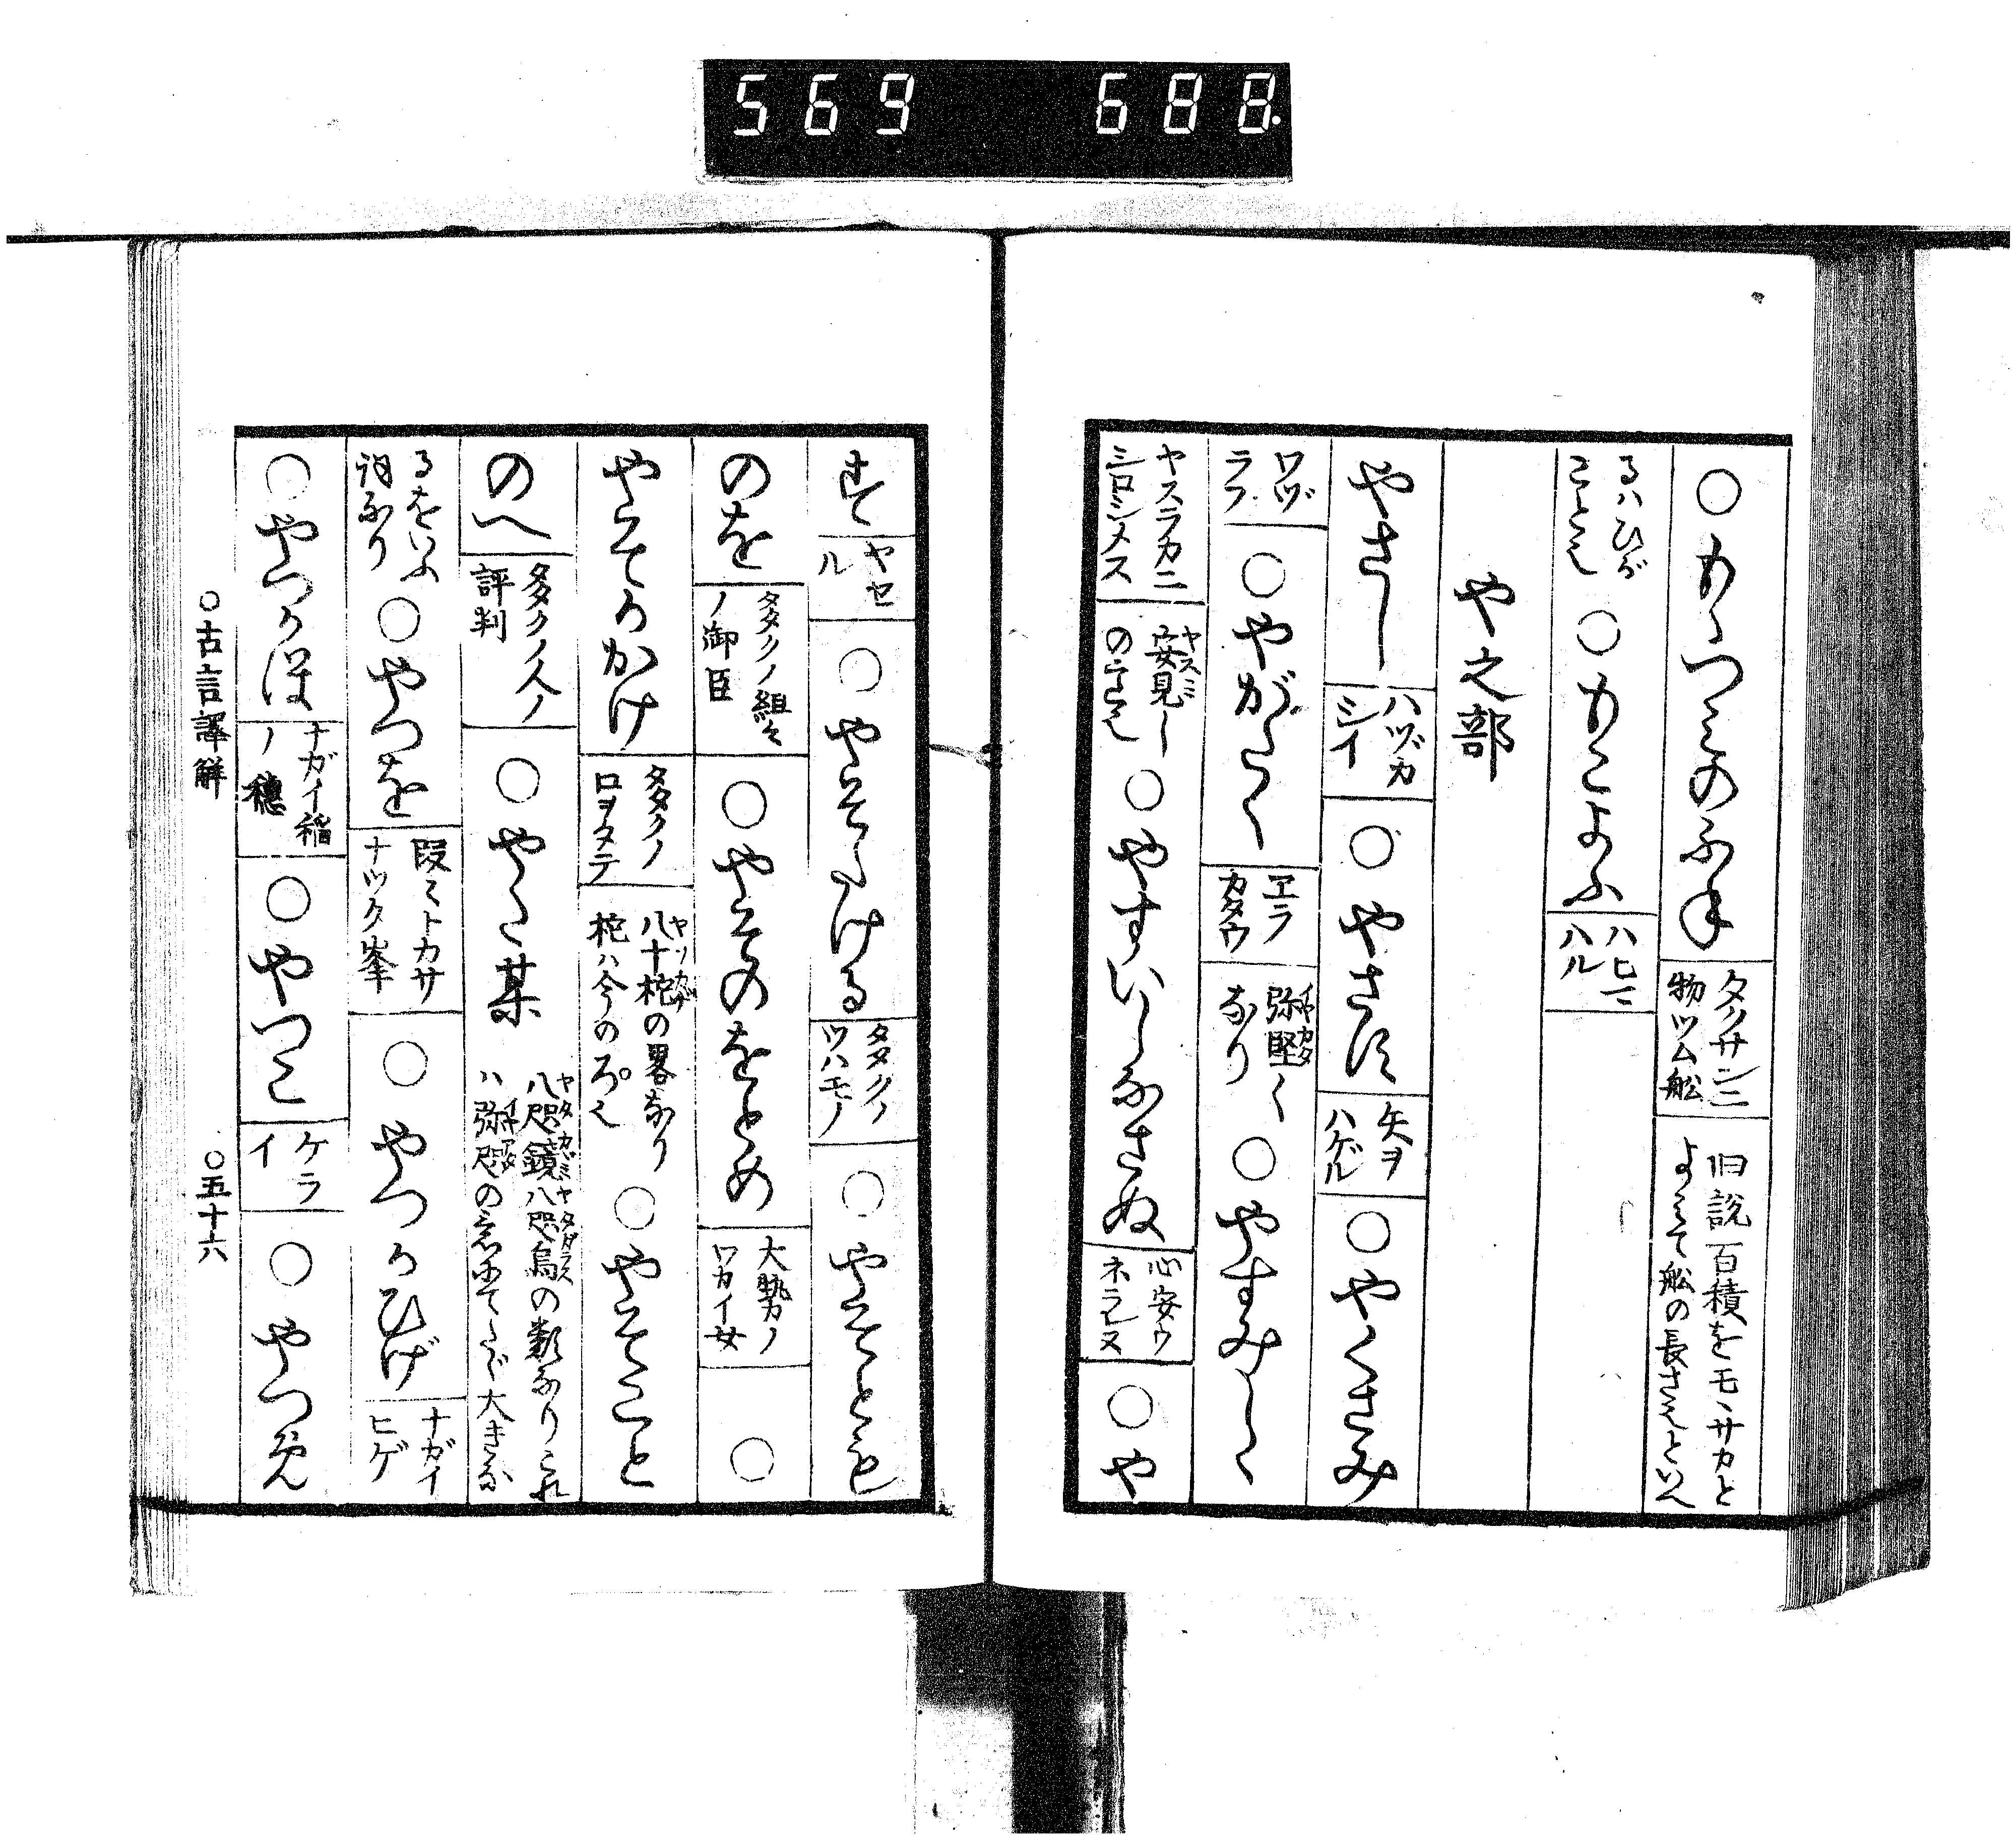 569 688.
○もゝつミのふね タクサンニ物ツム舩 旧説百積をモヽサカとよミて舩の長さ也といへ
るハひがことなり ○もこよふ ハヒニハル
や之部
やさし ハヅカシイ ○やさに 矢ヲハゲル ○やくさみ
ワヅラフ ○やがたく ヱラカタウ 弥堅くなり ○やすみしゝ
ヤスラカニシロシメス 安見しの意也 ○やすいしなさぬ 心安ウネラレヌ ○や
すや ヤセル ○やそたける タクノツハモノ ○やそとも
のを タクノ組々ノ御臣 ○やそのをとめ 大勢ノワカイ女 ○
やそかかけ タクノロヲタテ 八十梶の畧なり 梶ハ今のろ也 ○やそこと
のへ タクノ人ノ評判 ○やた某 八咫鏡八咫烏の類なりこれハ弥咫の意にてたゞ大きな
るをいふ詞なり ○やつを 段ミトカサナツタ峯 ○やつかひげ ナガイヒゲ
○やつかほ ナガイ稲ノ穂 ○やつこ ケライ ○やつめ
○古言譯解 ○五十六